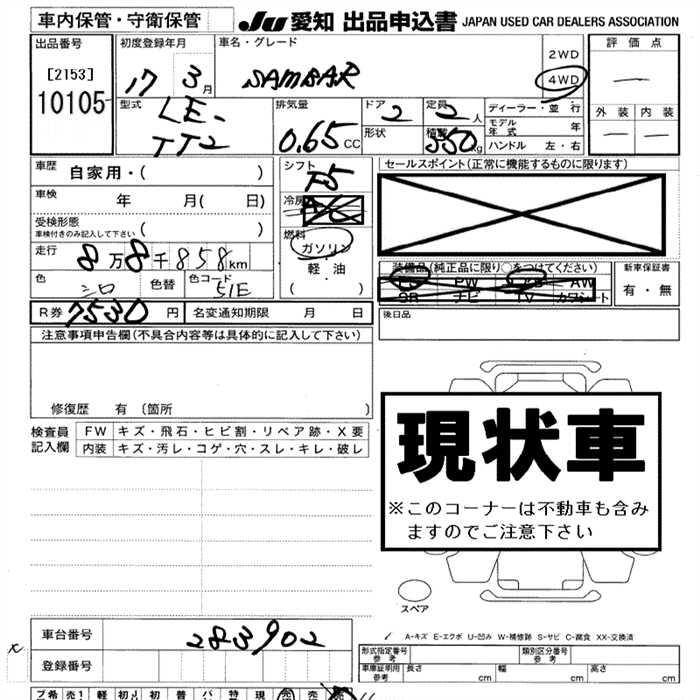 車内保管・守衛保管
JU 愛知 出品申込書 JAPAN USED CAR DEALERS ASSOCIATION
出品番号
[2153]
10105
初度登録年月
17 3月
車名・グレード
SAMBAR
2WD
4WD
評価点
外装 内装
型式
LE-
TT2
排気量
0.65 CC
ドア
2
形状
定員
2人
積載
350kg
ディーラー・並行
モデル年式 年
ハンドル 左・右
車歴
自家用・( )
車検 年 月( 日)
受検形態
車検付きのみ記入して下さい ( )
走行
8万8千858km
色
シロ
色替
色コード
51E
シフト
F5
冷房
AC
燃料
ガソリン
・
軽油
( )
セールスポイント(正常に機能するものに限ります)
装備品(純正品に限り○をつけてください)
PW AW
SR ナビ TV カワシート
新車保証書
有・無
後日品
R券 7530円
名変通知期限 月 日
注意事項申告欄(不具合内容等は具体的に記入して下さい)
修復歴 有 (箇所 )
検査員
記入欄
FW キズ・飛石・ヒビ割・リペア跡・X要
内装 キズ・汚レ・コゲ・穴・スレ・キレ・破レ
現状車
※このコーナーは不動車も含み
ますのでご注意下さい
スペア
A-キズ E-エクボ U-凹み W-補修跡 S-サビ C-腐食 XX-交換済
x
車台番号
283902
登録番号
形式指定番号
参考
類別区分番号
参考
車庫証明用
参考
長さ cm 幅 cm 高さ cm